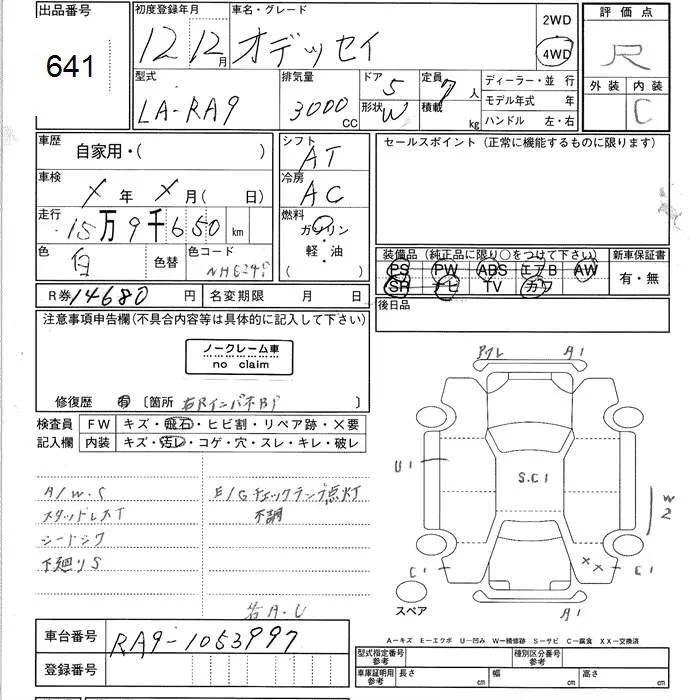 出品番号 初度登録年月 車名・グレード 2WD 評価点
641 12 12月 オデッセイ 4WD R
型式 排気量 ドア 5 定員 7人 ディーラー・並行 外装 内装
LA-RA9 3000CC 形状 W 積載 kg モデル年式 年 C
ハンドル 左・右
車歴 自家用・( ) シフト AT セールスポイント(正常に機能するものに限ります)
車検 X年 X月( 日) 冷房 AC
走行 15万9千650km 燃料 ガソリン
色 白 色替 色コード 軽・油 ( )
装備品(純正品に限り○をつけて下さい) 新車保証書
PS PW ABS エアB AW 有・無
SR ナビ TV カワ
R券 14680円 名変期限 月 日 後日品
注意事項申告欄(不具合内容等は具体的に記入して下さい)
ノークレーム車
no claim
修復歴 有 〔箇所 〕
検査員 FW キズ・飛石・ヒビ割・リペア跡・×要
記入欄 内装 キズ・汚レ・コゲ・穴・スレ・キレ・破レ
A1
U1 S.C1 W2
A/W・S E/Gチェックランプ点灯
スタッドレスT 不調
シートシワ
下廻りS
C1 XX C1
スペア A1
右A・U
A−キズ E−エクボ U−凹み W−補修跡 S−サビ C−腐食 XX−交換済
車台番号 RA9-1053997
登録番号
型式指定番号 参考 種別区分番号 参考
車庫証明用 参考 長さ cm 幅 cm 高さ cm